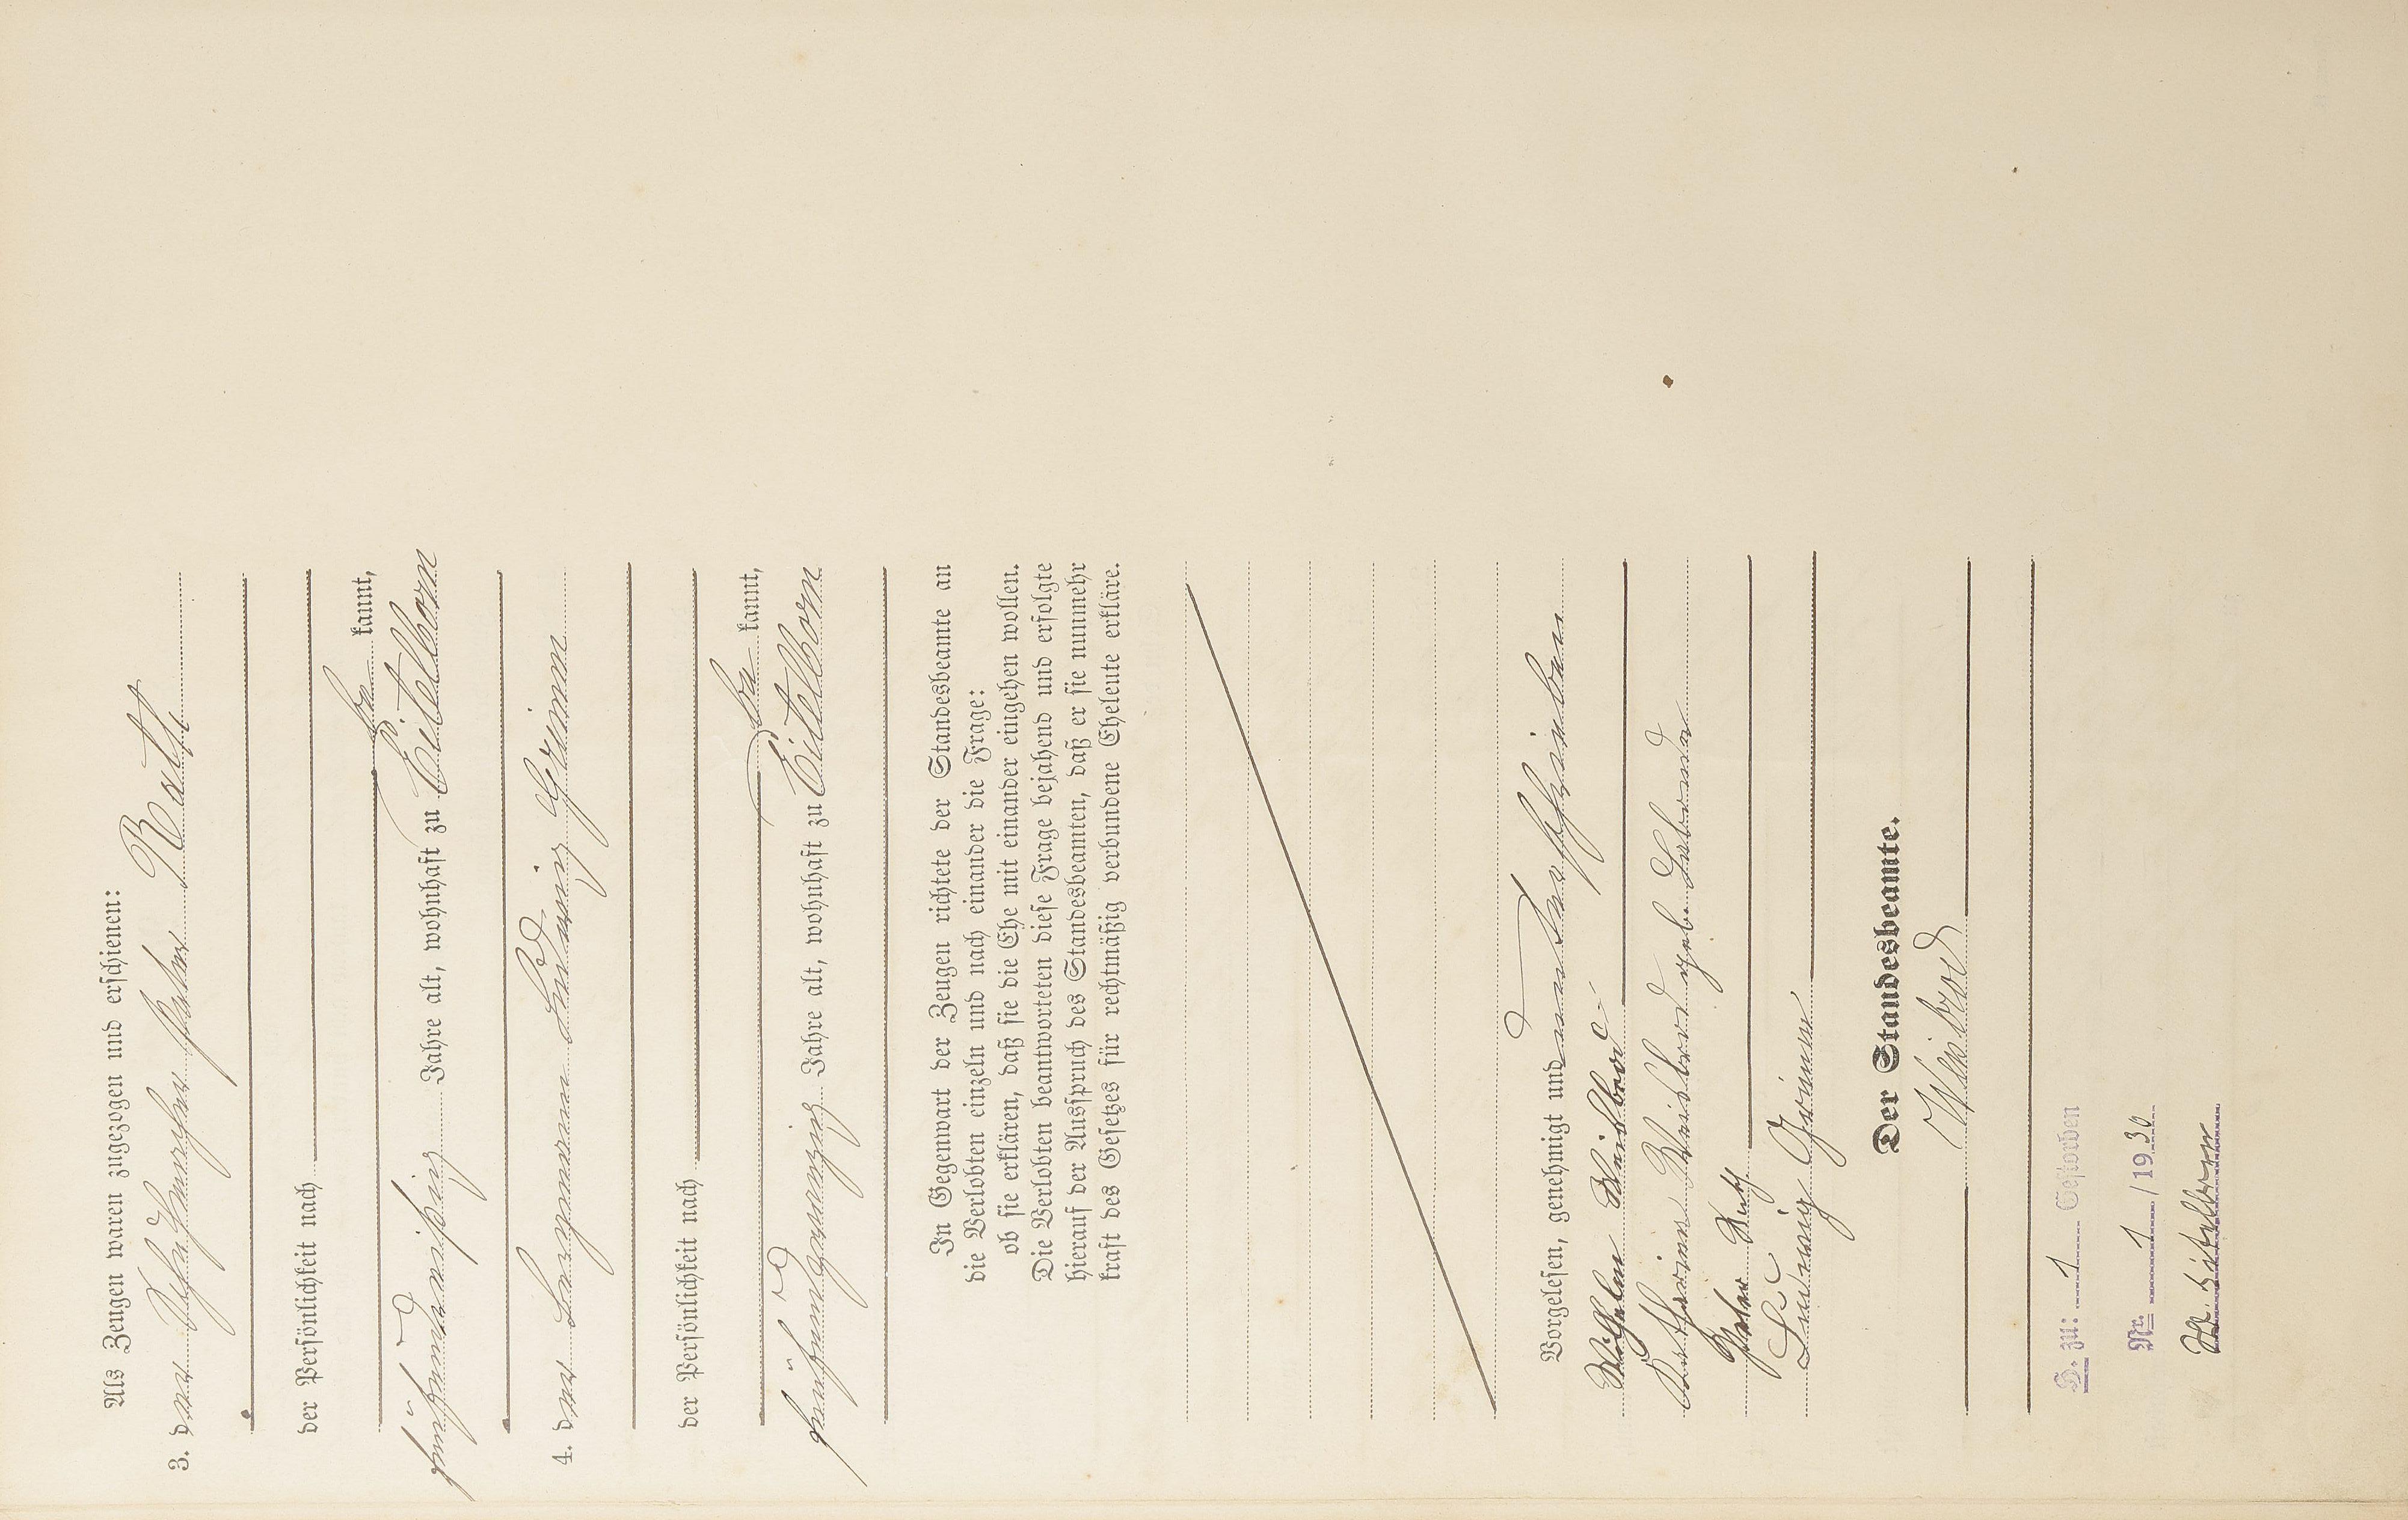 Als Zeugen waren zugezogen und erschienen:
3. der Schuhmacher Peter Katt
der Persönlichkeit nach
be kannt,
fünfunddreißig Jahre alt, wohnhaft zu Eitelborn
4. der Bergmann Ludwig Grimm
der Persönlichkeit nach
be kannt,
fünfundzwanzig Jahre alt, wohnhaft zu Eitelborn
In Gegenwart der Zeugen richtete der Standesbeamte an
die Verlobten einzeln und nach einander die Frage:
ob sie erklären, daß sie die Ehe mit einander eingehen wollen.
Die Verlobten beantworteten diese Frage bejahend und erfolgte
hierauf der Ausspruch des Standesbeamten, daß er sie nunmehr
kraft des Gesetzes für rechtmäßig verbundene Eheleute erkläre.
Vorgelesen, genehmigt und unterschrieben
Wilhelm Weisbrod
Katharina Weisbrod geb.
Peter
Ludwig Grimm
Der Standesbeamte.
Weisbrod
H. zu: 1 Gestorben
Nr. 1 / 1930
St. A. Eitelborn